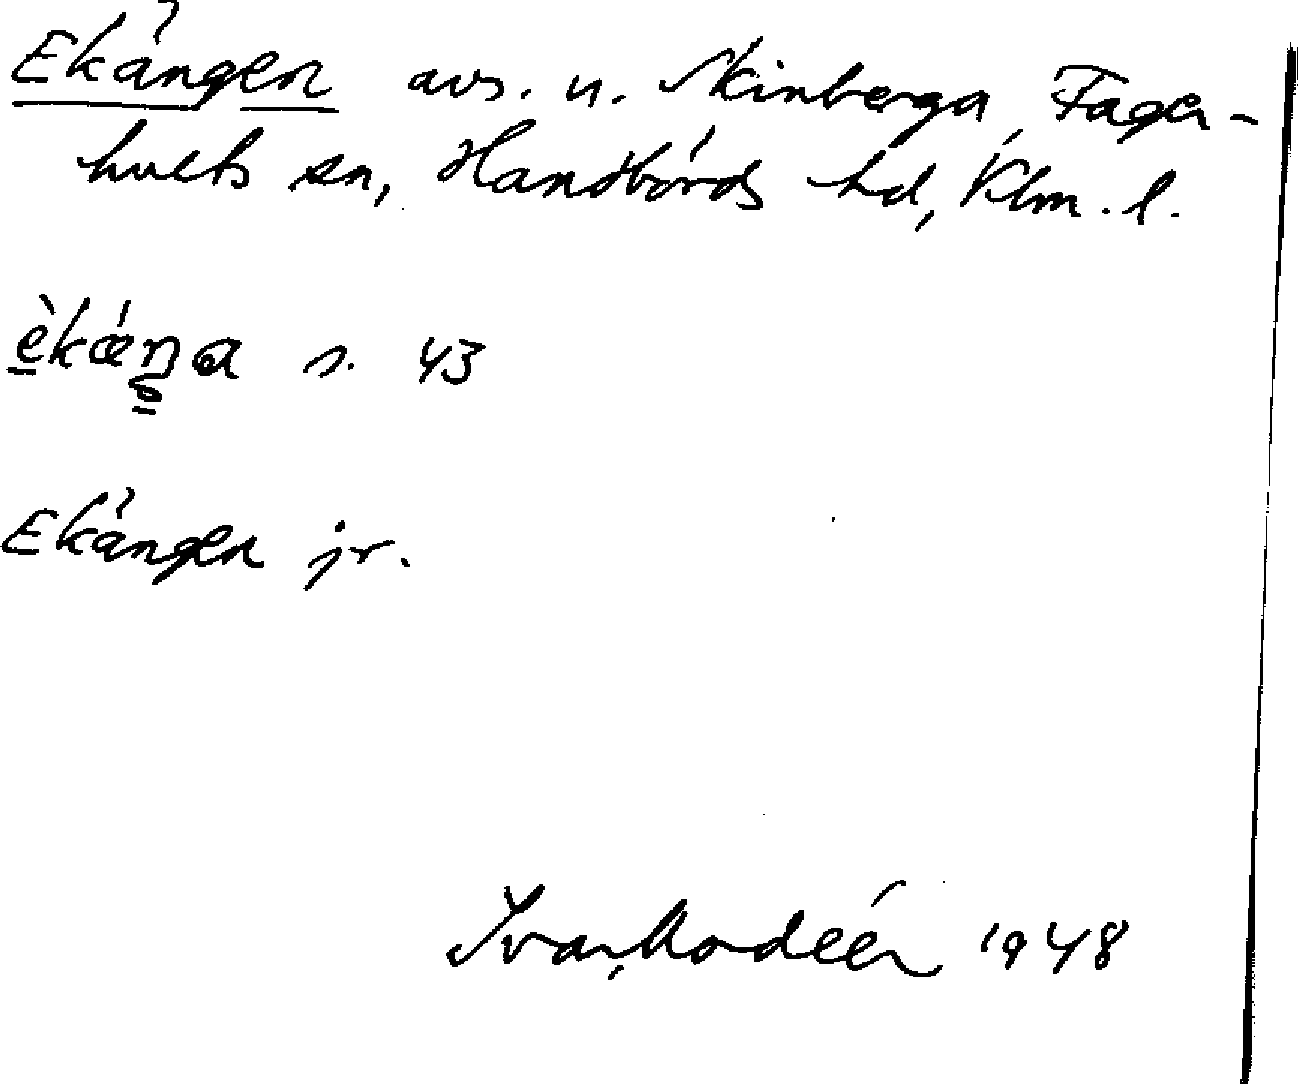 Ekängen avs. u. Skinberga, Fager-
hults sn, Handbörds hd, Klm. l.
s. 43
Ekängen jr.
Ivar Modéer 1948